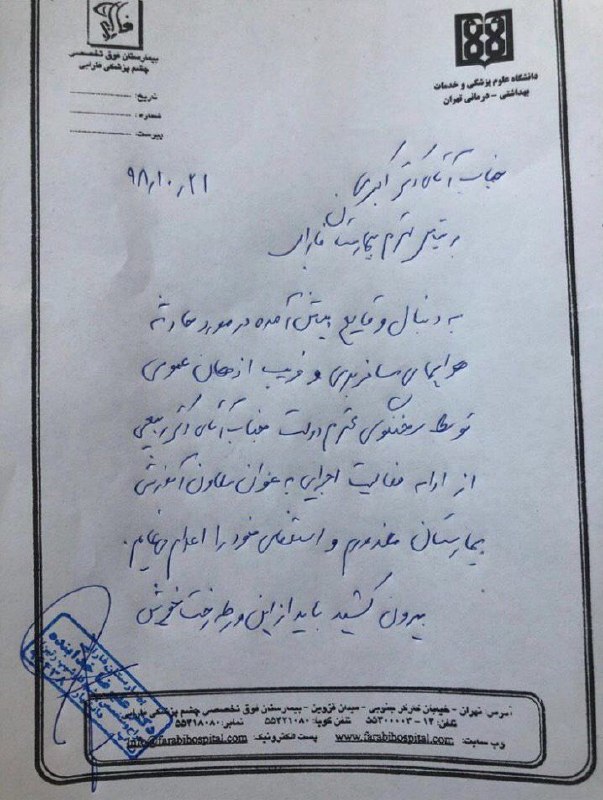 دانشگاه علوم پزشکی و خدمات
بهداشتی - درمانی تهران
بیمارستان فوق تخصصی
چشم پزشکی فارابی
تاریخ:
شماره:
پیوست:
جناب آقای دکتر اکبری
۹۸٫۱۰٫۲۱
ریاست محترم بیمارستان فارابی
به دنبال وقایع پیش آمده در مورد حادثه
هواپیمای مسافربری و فریب اذهان عمومی
توسط سخنگوی محترم دولت جناب آقای دکتر ربیعی
از ارائه فعالیت اجرایی به عنوان معاون آموزشی
بیمارستان معذورم و استعفای خود را اعلام می‌نمایم.
بیرون کشید باید از این ورطه رخت خویش
آدرس: تهران - خیابان کارگر جنوبی - میدان قزوین - بیمارستان فوق تخصصی چشم پزشکی فارابی
تلفن: ۱۴-۵۵۴۰۰۰۰۳ تلفن گویا: ۵۵۴۲۱۰۸۰ نمابر: ۵۵۴۱۸۰۸۰
وب سایت: www.farabihospital.com پست الکترونیک: info@farabihospital.com